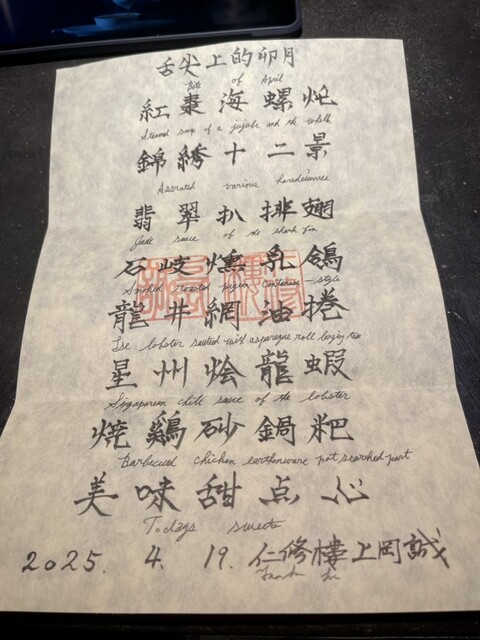 舌尖上的卯月
Bite of April
紅棗海螺炖
Steamed soup of a jujube and the whelk
錦綉十二景
Assorted various horsdeoeuvre
翡翠扒排翅
Jade sauce of the shark fin
石岐燻乳鴿
Smoked roasted pigeon Cantonese-style
龍井網油捲
Ise lobster sauted with asparagus roll longjing tea
星州烩龍蝦
Singaporean chili sauce of the lobster
焼鷄砂鍋粑
Barbecued chicken earthenware pot scorched part
美味甜点心
Todays sweets
2025. 4. 19. 仁修樓上岡誠